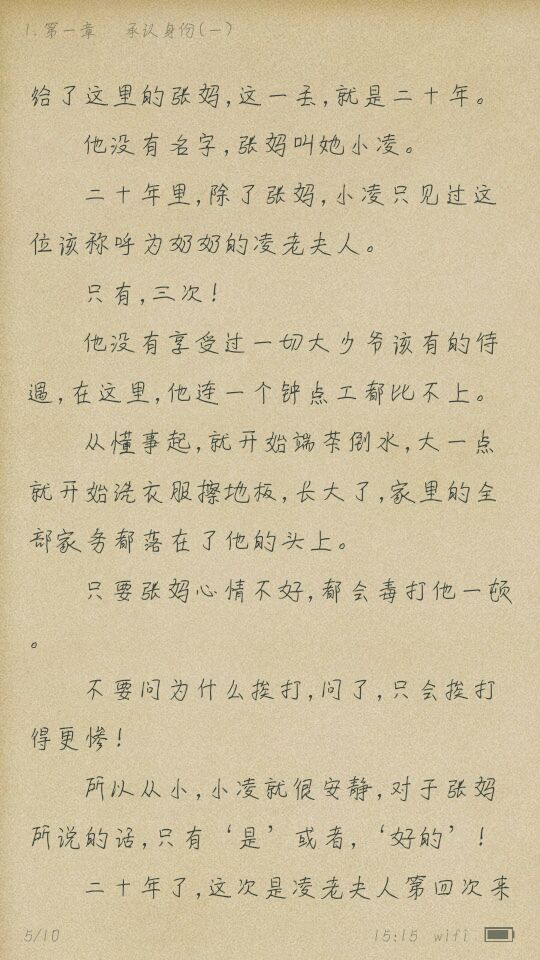 1.第一章 承认身份(一)
给了这里的张妈,这一丢,就是二十年。
他没有名字,张妈叫她小凌。
二十年里,除了张妈,小凌只见过这
位该称呼为奶奶的凌老夫人。
只有,三次!
他没有享受过一切大少爷该有的待
遇,在这里,他连一个钟点工都比不上。
从懂事起,就开始端茶倒水,大一点
就开始洗衣服擦地板,长大了,家里的全
部家务都落在了他的头上。
只要张妈心情不好,都会毒打他一顿
。
不要问为什么挨打,问了,只会挨打
得更惨!
所以从小,小凌就很安静,对于张妈
所说的话,只有‘是’或者,‘好的’!
二十年了,这次是凌老夫人第四次来
5/10 15:15 wifi